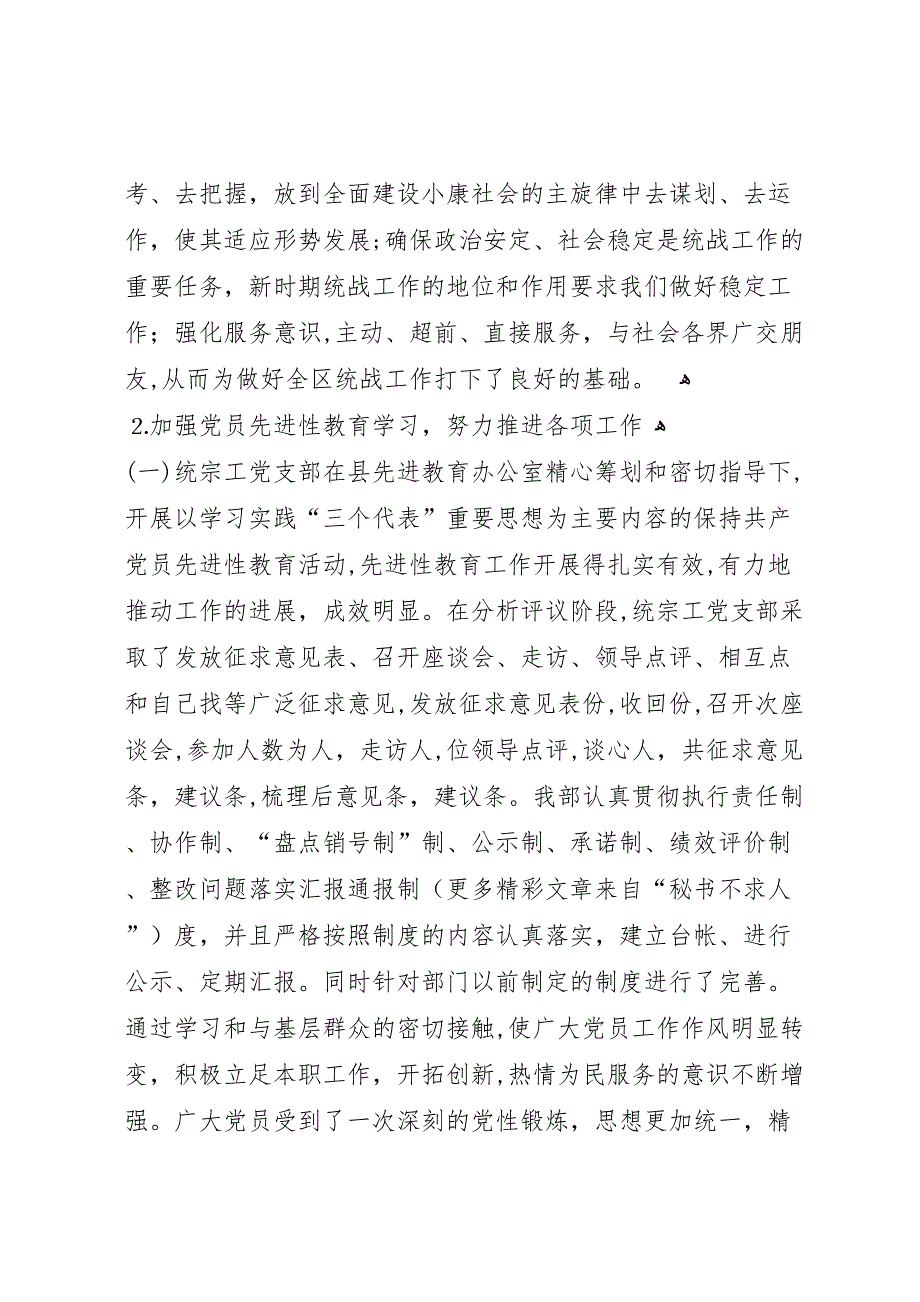 考、去把握，放到全面建设小康社会的主旋律中去谋划、去运
作，使其适应形势发展;确保政治安定、社会稳定是统战工作的
重要任务，新时期统战工作的地位和作用要求我们做好稳定工
作；强化服务意识,主动、超前、直接服务，与社会各界广交朋
友,从而为做好全区统战工作打下了良好的基础。 ﻫ
2.加强党员先进性教育学习，努力推进各项工作 ﻫ
(一)统宗工党支部在县先进教育办公室精心筹划和密切指导下,
开展以学习实践“三个代表”重要思想为主要内容的保持共产
党员先进性教育活动,先进性教育工作开展得扎实有效,有力地
推动工作的进展，成效明显。在分析评议阶段,统宗工党支部采
取了发放征求意见表、召开座谈会、走访、领导点评、相互点
和自己找等广泛征求意见,发放征求意见表份,收回份,召开次座
谈会,参加人数为人，走访人,位领导点评,谈心人，共征求意见
条，建议条,梳理后意见条，建议条。我部认真贯彻执行责任制
、协作制、“盘点销号制”制、公示制、承诺制、绩效评价制
、整改问题落实汇报通报制（更多精彩文章来自“秘书不求人
”）度，并且严格按照制度的内容认真落实，建立台帐、进行
公示、定期汇报。同时针对部门以前制定的制度进行了完善。
通过学习和与基层群众的密切接触,使广大党员工作作风明显转
变，积极立足本职工作，开拓创新,热情为民服务的意识不断增
强。广大党员受到了一次深刻的党性锻炼，思想更加统一，精